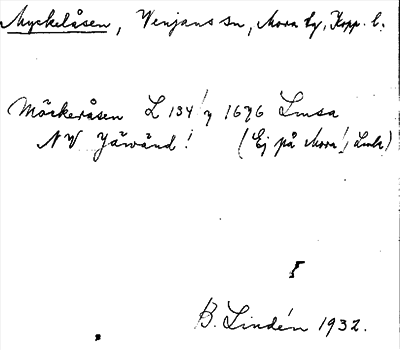 Myckelåsen, Venjans sn, Mora tg, Kopp. l.
Möckeråsen L 134! y 1696 Lmsa
NV Jäwänd! (Ej på Mora!, Lmk)
B. Lindén 1932.